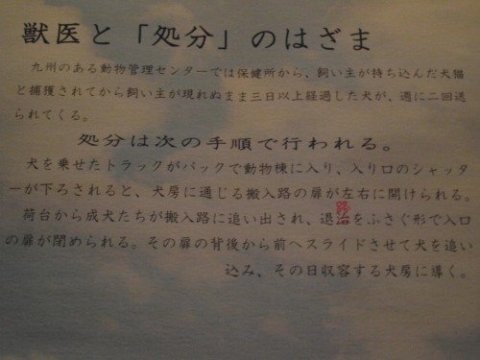 獣医と「処分」のはざま
九州のある動物管理センターでは保健所から、飼い主が持ち込んだ犬猫
と捕獲されてから飼い主が現れぬまま三日以上経過した犬が、週に二回送
られてくる。
処分は次の手順で行われる。
犬を乗せたトラックがバックで動物棟に入り、入り口のシャッタ
ーが下ろされると、犬房に通じる搬入路の扉が左右に開けられる。
荷台から成犬たちが搬入路に追い出され、退治をふさぐ形で入口
路
の扉が閉められる。その扉の背後から前へスライドさせて犬を追い
込み、その日収容する犬房に導く。